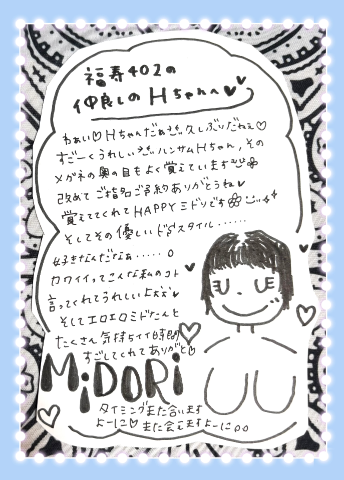 福寿402の
仲良しの Hちゃんへ♥♥
わぁい♡Hちゃんだぁ 久しぶりだねぇ♡
すごーくうれしい ハンサムHちゃん,その
メガネの奥の目もよく覚えています
改めて ご指名ご予約ありがとうね♥
覚えててくれてHAPPYミドリです
そしてその優しいドSスタイル......
好きなんだなぁ.....
カワイイってこんな私のコト
言ってくれてうれしいよぉ
そしてエロエロミドたんと
たくさん気持ちイイ時間
すごしてくれてありがと♡
MiDORi
タイミングまた合います
よーに♡また会えますよーに